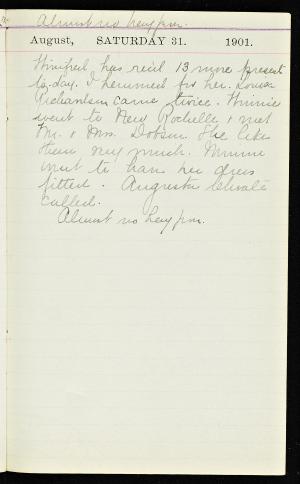 Almost no hay fever.
August, SATURDAY 31. 1901.
Winifred has rec'd 13 more presents
to-day. I hemmed for her. Louise
Richardson came twice. Minnie
went to New Rochelle & met
Mr. & Mrs. Dobson. She likes
them very much. Minnie
went to have her dress
fitted. Augusta
called.
Almost no hay fever.